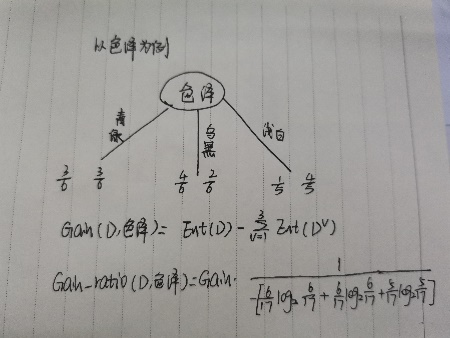 以色泽为例
色泽
青绿 乌黑 浅白
3/6 3/6 4/6 2/6 1/5 4/5
Gain(D,色泽)= Ent(D) - Σ_{v=1}^{3} Ent(D^v)
Gain-ratio(D,色泽)=Gain· 1/(-[6/17 log₂ 6/17 + 6/17 log₂ 6/17 + 5/17 log₂ 5/17])